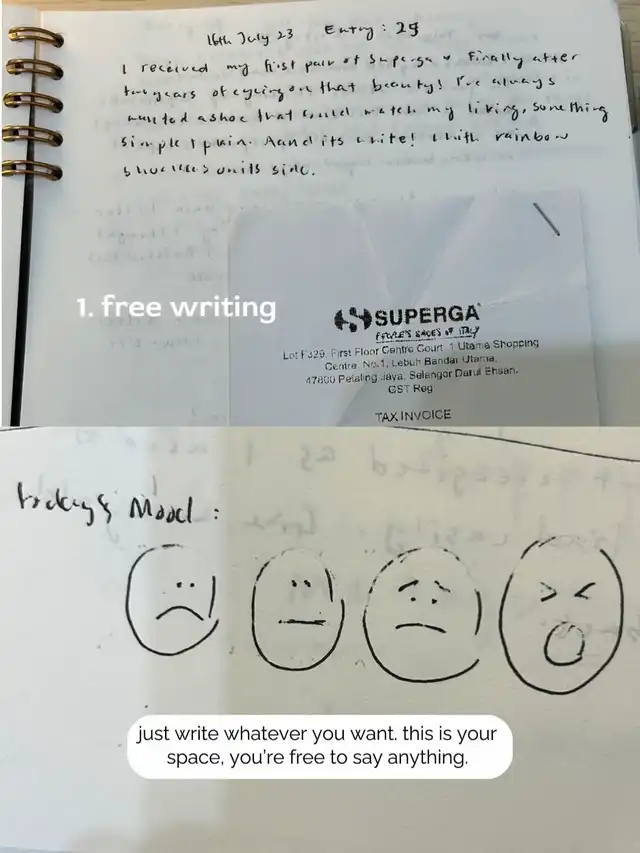 16th July 23 Entry: 25
I received my first pair of Superga finally after
two years of eyeing on that beauty! I've always
wanted a shoe that could match my living, something
simple & plain. Aand its white! With rainbow
shoelaces on its side.
1. free writing
SUPERGA
PEOPLE'S SHOES OF ITALY
Lot F329, First Floor Centre Court, 1 Utama Shopping
Centre, No.1, Lebuh Bandar Utama,
47800 Petaling Jaya, Selangor Darul Ehsan.
GST Reg
TAX INVOICE
today's Mood :
just write whatever you want. this is your
space, you're free to say anything.